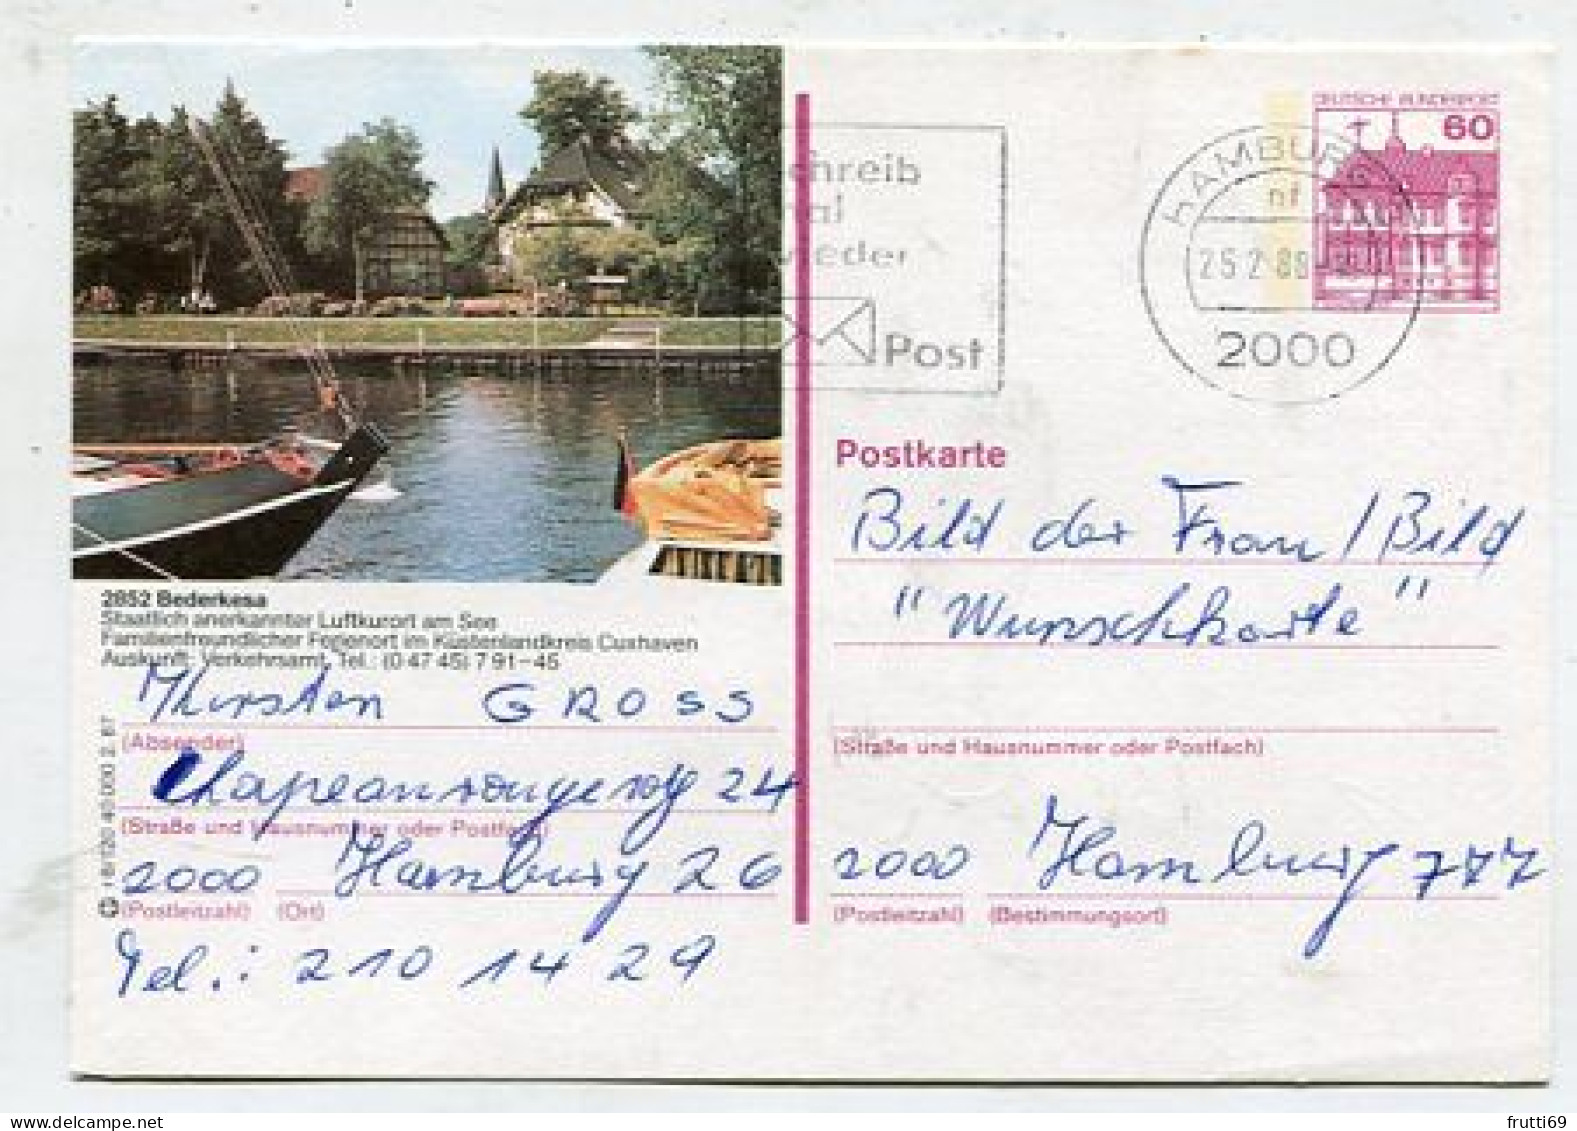 DEUTSCHE BUNDESPOST
60
Schreib
mal
wieder
Post
HAMBURG
nf
25.2.88
2000
Postkarte
Bild der Frau / Bild
"Wunschkarte"
(Straße und Hausnummer oder Postfach)
2000 Hamburg 777
(Postleitzahl) (Bestimmungsort)
2852 Bederkesa
Staatlich anerkannter Luftkurort am See
Familienfreundlicher Ferienort im Küstenlandkreis Cuxhaven
Auskunft: Verkehrsamt, Tel.: (0 47 45) 7 91–45
Thorsten GROSS
(Absender)
24
(Straße und Hausnummer oder Postfach)
2000 Hamburg 26
(Postleitzahl) (Ort)
Tel.: 210 14 29
40.000 2. 87
frutti69